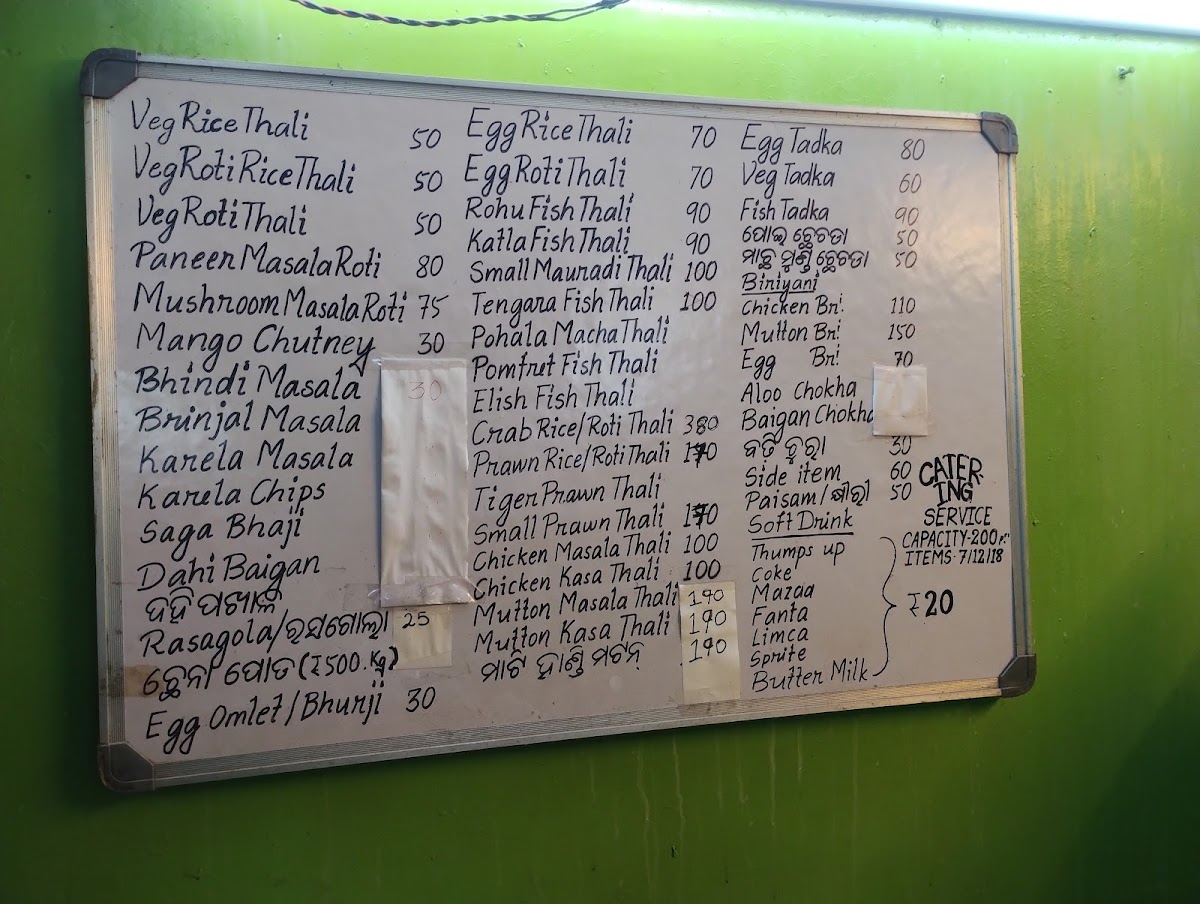 Veg Rice Thali 50
Veg Roti Rice Thali 50
Veg Roti Thali 50
Paneer Masala Roti 80
Mushroom Masala Roti 75
Mango Chutney 30
Bhindi Masala 30
Brinjal Masala
Karela Masala
Karela Chips
Saga Bhaji
Dahi Baigan
ଦହି ପଖାଳ
Rasagola/ରସଗୋଲା 25
ଛେନା ପୋଡ (₹500.Kg)
Egg Omlet/Bhurji 30
Egg Rice Thali 70
Egg Roti Thali 70
Rohu Fish Thali 90
Katla Fish Thali 90
Small Mauradi Thali 100
Tengara Fish Thali 100
Pohala Macha Thali
Pomfret Fish Thali
Elish Fish Thali
Crab Rice/Roti Thali
Prawn Rice/Roti Thali
Tiger Prawn Thali
Small Prawn Thali
Chicken Masala Thali 100
Chicken Kasa Thali 100
Mutton Masala Thali 190
Mutton Kasa Thali 190
ମାଟି ହାଣ୍ଡି ମଟନ୍ 190
Egg Tadka 80
Veg Tadka 60
Fish Tadka 90
ପୋଇ ଛେଚଡା 50
ମାଛ ମୁଣ୍ଡି ଛେଚଡା 50
Biriyani
Chicken Bri. 110
Mutton Bri. 150
Egg Bri. 70
Aloo Chokha
Baigan Chokha
ବଡ଼ି ଚୁରା 30
Side item 60
Paisam/କ୍ଷୀରୀ 50
Soft Drink
Thumps up
Coke
Mazaa
Fanta
Limca
Sprite
Butter Milk
₹20
CATER
ING
SERVICE
CAPACITY-200
ITEMS-7/12/18